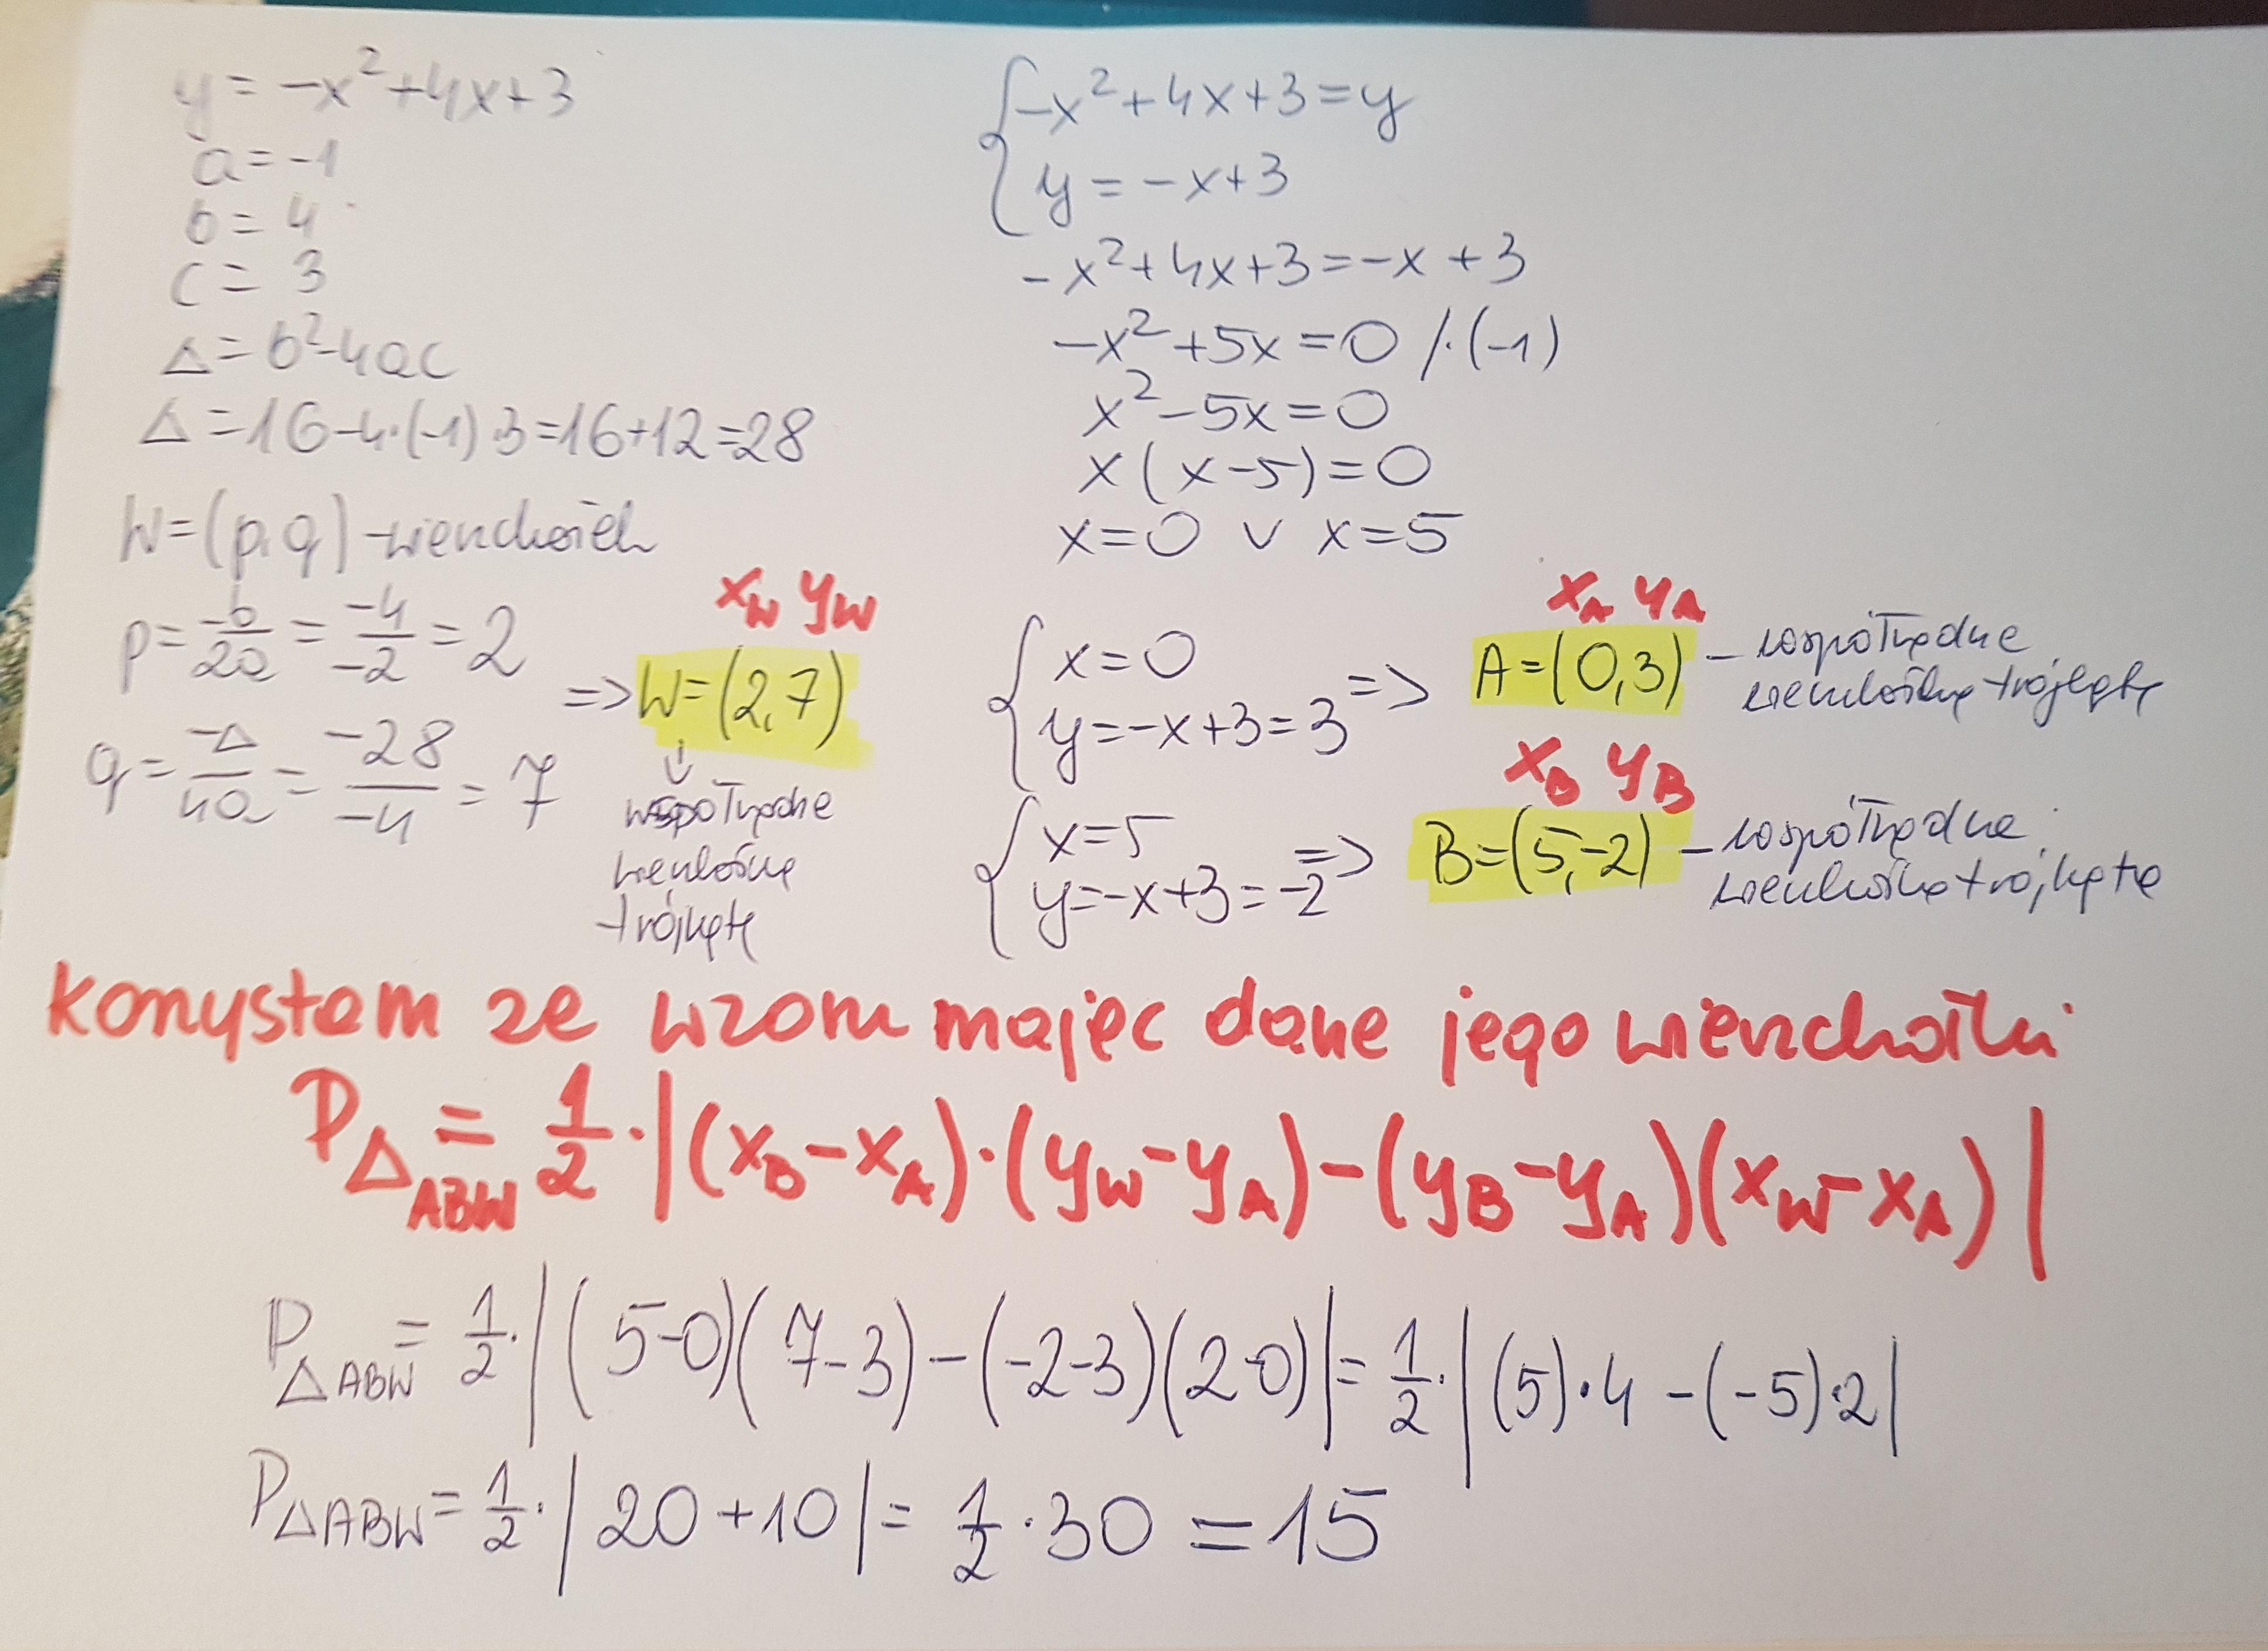 y = -x²+4x+3
a = -1
b = 4
c = 3
Δ = b²-4ac
Δ = 16-4·(-1)·3=16+12=28
W=(p,q) - wierzchołek
p = -b/2a = -4/-2 = 2
q = -Δ/4a = -28/-4 = 7
xW yW
=> W=(2,7)
współrzędne
wierzchołka
trójkąta
{ -x²+4x+3=y
y = -x+3
-x²+4x+3=-x+3
-x²+5x=0 /·(-1)
x²-5x=0
x(x-5)=0
x=0 ∨ x=5
xA yA
{ x=0
y=-x+3=3 => A=(0,3) - współrzędne
wierzchołka trójkąta
xB yB
{ x=5
y=-x+3=-2 => B=(5,-2) - współrzędne
wierzchołka trójkąta
Korzystam ze wzoru mając dane jego wierzchołki
PΔABW = 1/2·|(xB-xA)·(yW-yA)-(yB-yA)(xW-xA)|
PΔABW = 1/2·|(5-0)(7-3)-(-2-3)(2-0)|= 1/2·|(5)·4-(-5)·2|
PΔABW = 1/2·|20+10|= 1/2·30 = 15